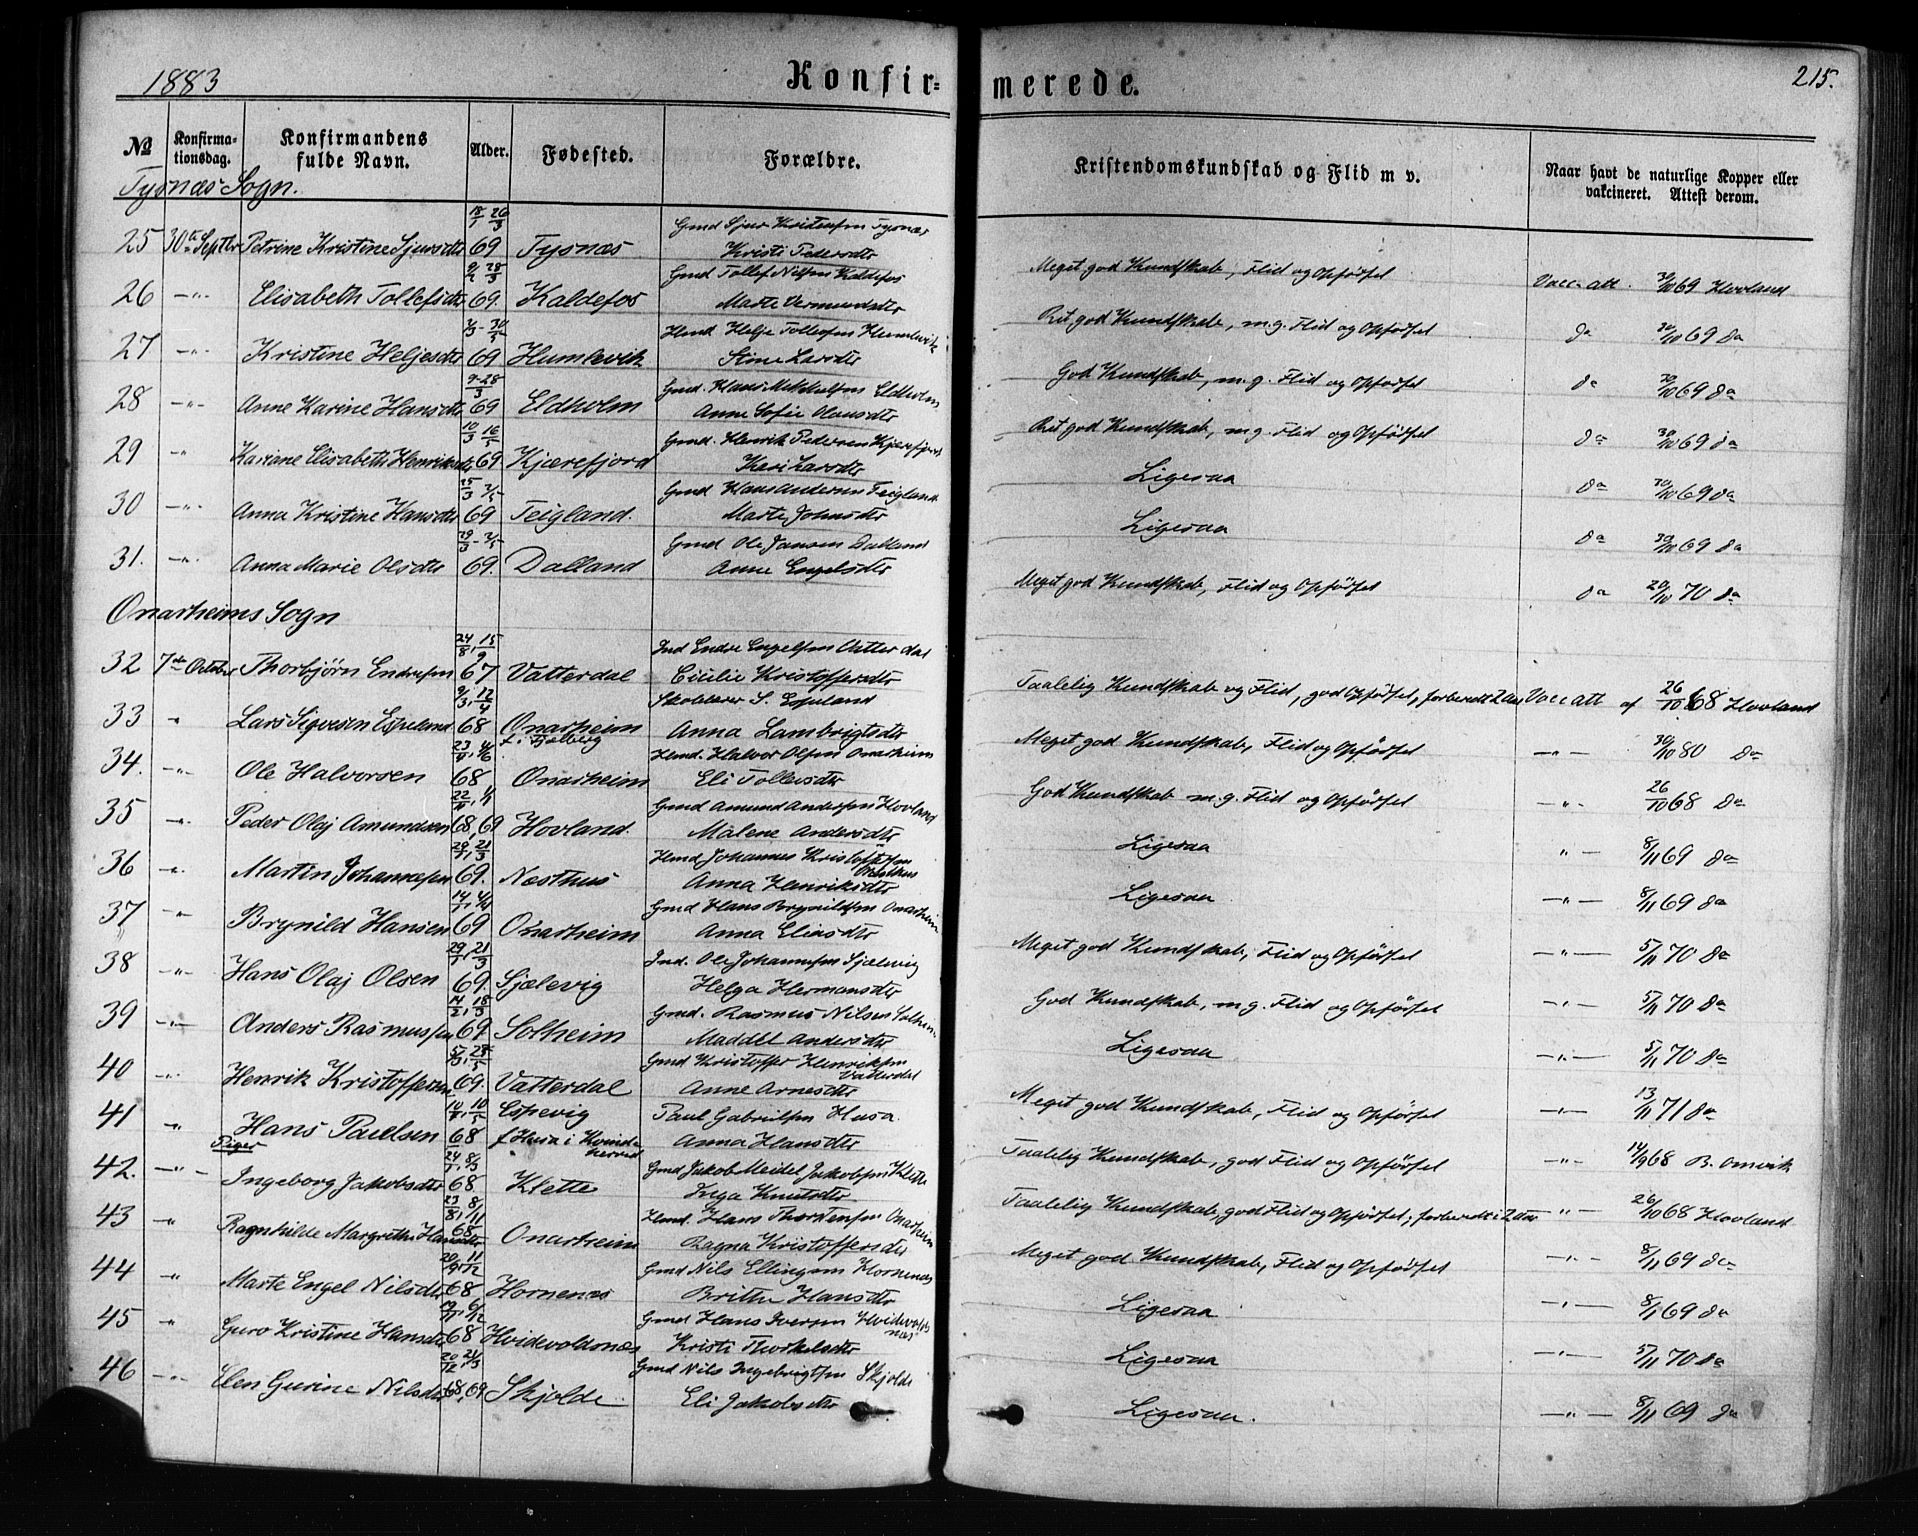 1883 Konfir= merede. 215.
№ Konfirma-tionsdag. Konfirmandens fulde Navn. Alder. Fødested. Forældre. Kristendomskundskab og Flid m v. Naar havt de naturlige Kopper eller vakcineret. Attest derom.
Tysnæs Sogn.
18/1 26/3 Gmd Sjur Tysnæs
25 30te Septbr Petrine Kristine Sjursdtr 69 Tysnæs Kristi Pedersdtr Meget god Kundskab, Flid og Opførsel Vacc. att. 30/10 69 Hovland
28/3 Gmd Tollef Nilsen Kaldefos
26 -"- Elisabeth Tollefsdtr 69. Kaldefos Marte Vermundsdtr Ret god Kundskab, m.g. Flid og Opførsel da 30/10 69 da
2/3 - 30/5 Helje Tollefsen Humlevik
27 -"- Kristine Heljesdtr 69 Humlevik Stine Larsdtr God Kundskab, m.g. Flid og Opførsel da 30/10 69 da
9-28/3 Gmd. Hans Mikkelsen Eldholm
28 -"- Anne Karine Hansdtr 69 Eldholm Anne Sofie Olausdtr Ret god Kundskab, m.g. Flid og Opførsel da 30/10 69 da
10/3 16/5 Gmd. Henrik Pedersen Kjærefjord
29 " Kariane Elisabeth Henriksdtr 69. Kjærefjord Kari Larsdtr Ligesaa da 30/10 69 da
25/3 2/5 Gmd Hans Andersen Teigland
30 -"- Anna Kristine Hansdtr 69 Teigland. Marte Johnsdtr Ligesaa da 30/10 69 da
29/3 - 2/5 Gmd Ole Jansen Dalland
31. -"- Anna Marie Olsdtr 69. Dalland Anne Engelsdtr Meget god Kundskab, Flid og Opførsel da 20/10 70 da
Onarheims Sogn
24/8, 15/9 Ind Endre Engelsen Vatterdal
32 7de October Thorbjørn Endresen 67 Vatterdal Cicilie Kristoffersdtr Taalelig Kundskab og Flid, god Opførsel, forberedt 2 Aar Vacc att af 26/10 68 Hovland
9/3, 12/4 Skolelærer S. Espeland
33 " Lars Sigvesen Espeland 68 Onarheim f. i Fjelberg Anna Lambrigtsdtr Meget god Kundskab, Flid og Opførsel -"- 30/10 80 Da
Halvor Olsen Onarheim
34. -"- Ole Halvorsen 68 Onarheim Eli Tollefsdtr God Kundskab m.g. Flid og Opførsel -"- 26/10 68 Da
22/11, 1/1 Gmd Amund Andersen Hovland
35 -"- Peder Olaj Amundsen 68, 69 Hovland. Malene Andersdtr Ligesaa "- 8/11 69 da
21/3 Johannes Kristofersen Næsthus
36 " Martin Johannesen 69. Næsthus Anna Henriksdtr Ligesaa -"- 8/11 69 da
Gmd Hans Brynildsen Onarheim
37 -"- Brynild Hansen 69 Onarheim Anna Eliasdtr Meget god Kundskab, Flid og Opførsel -"- 5/11 70 Da
29/1, 21/3 Ind. Ole Johannesen Sjælevig
38 -"- Hans Olaj Olsen 69. Sjælevig Helga Hermansdtr God Kundskab, m.g. Flid og Opførsel -"- 5/11 70 Da
14/2, 18/3 Gmd. Rasmus Nilsen Solheim
39 -"- Anders Rasmussen 69 Solheim Maddel Andersdtr Ligesaa -"- 5/11 70 Da
Gmd Kristoffer Henriksen Vatterdal
40 -"- Henrik Kristoffersen 69. Vatterdal Anne Arnesdtr Meget god Kundskab, Flid og Opførsel -"- 13/11 71 da
10/5 Espevig Paul Gabrielsen Husa
41 " Hans Paulsen 68 f. Husa i Kvindherred Anna Hansdtr Taalelig Kundskab, god Flid og Opførsel -"- 14/9 68 B. Omvik
Piger
Gmd Jakob Meidel Jakobsen Klette
42. -"- Ingeborg Jakobsdtr 68 Klette Inga Knutsdtr Taalelig Kundskab, god Flid og Opførsel; forberedt i 2 Aar -"- 26/10 68 Hovland
23/8, 8/11 Hans Thorstensen Onarheim
43 " Ragnhilde Margrethe Hansdtr 68 Onarheim Ragna Kristoffersdtr Meget god Kundskab, Flid og Opførsel -"- 8/11 69 da
20/9, 11/12 Gmd Nils Ellingsen Hornenæs
44 " Marte Engel Nilsdtr 68 Hornenæs Brithe Hansdtr Ligesaa -"- 8/11 69 da
Gmd Hans Iversen Hvidevoldsnæs
45 " Guro Kristine Hansdtr 68 Hvidevoldsnæs Kristi Thorkelsdtr Ligesaa -"- 5/11 70 da
20/12, 21/3 Gmd Nils Ingebrigtsen Skjolde
46 -"- Elen Gurine Nilsdtr 68, 69 Skjolde Eli Jakobsdtr Ligesaa. -"- 8/11 69 da